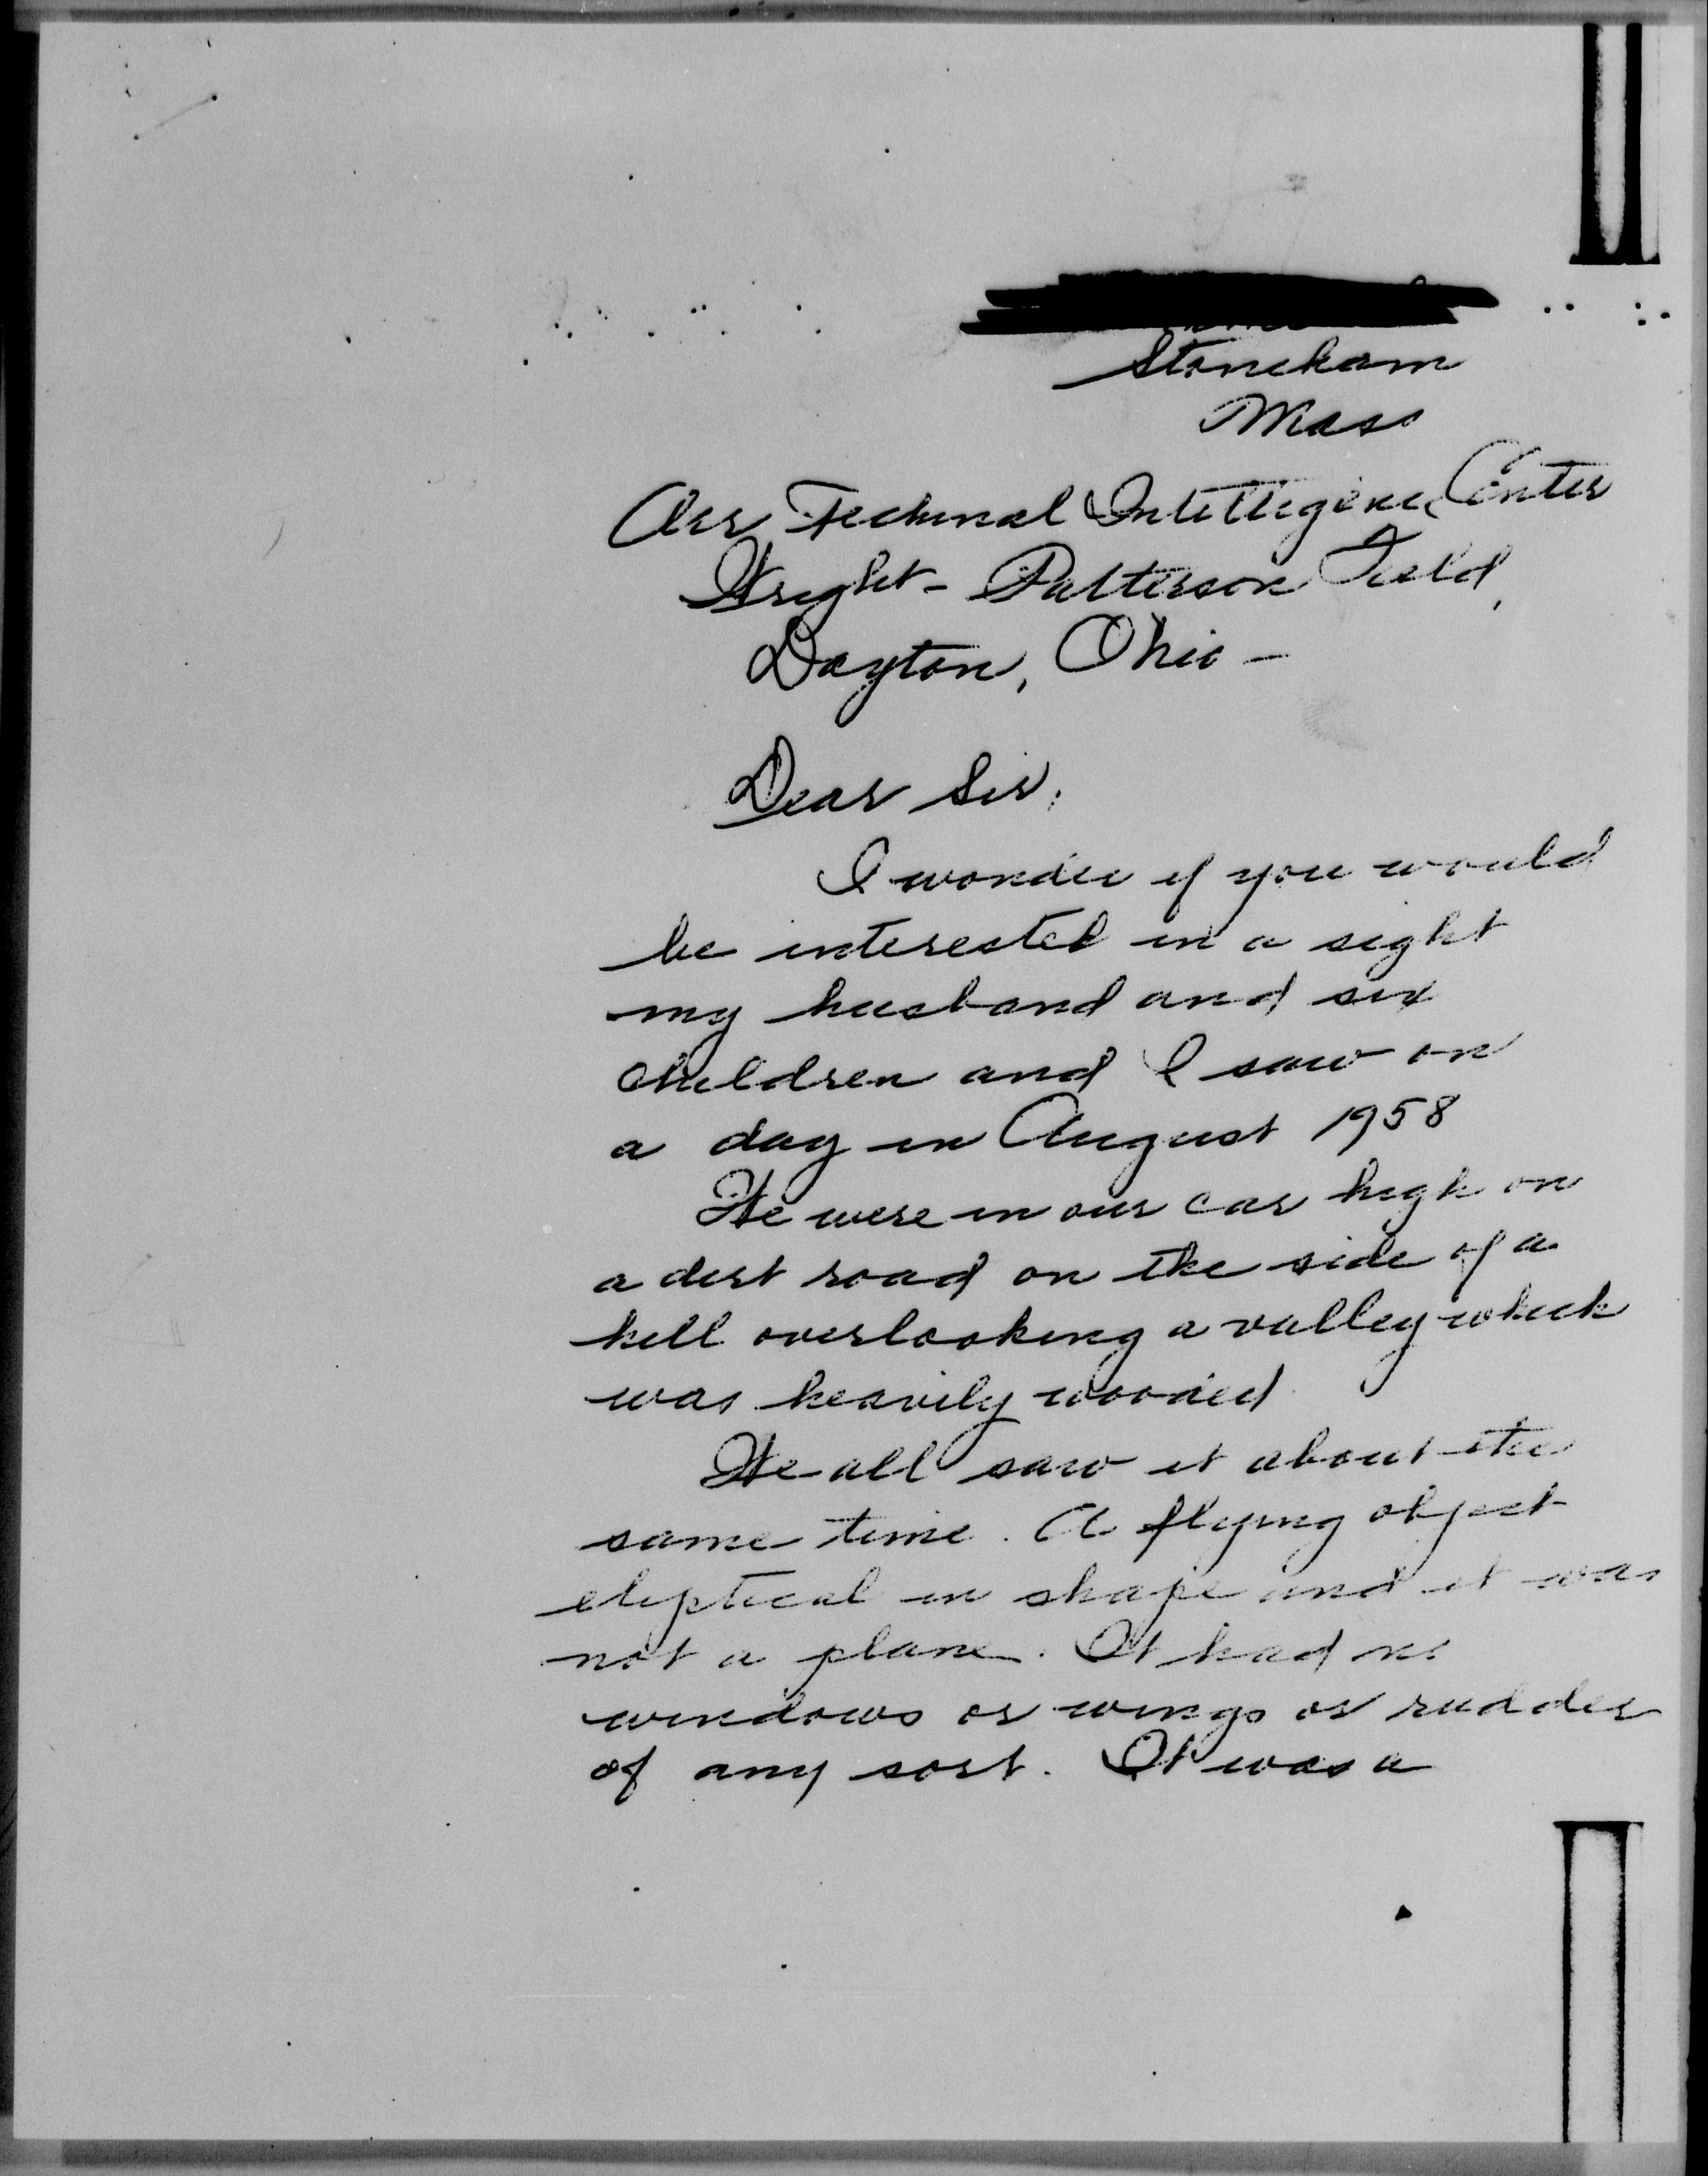 Stoneham
Mass
Air Technical Intelligence Center
Wright-Patterson Field,
Dayton, Ohio -
Dear Sir,
I wonder if you would
be interested in a sight
my husband and six
children and I saw on
a day in August 1958
We were in our car high on
a dirt road on the side of a
hill overlooking a valley which
was heavily wooded
We all saw it about the
same time. A flying object
eliptical in shape and it was
not a plane. It had no
windows or wings or rudder
of any sort. It was a